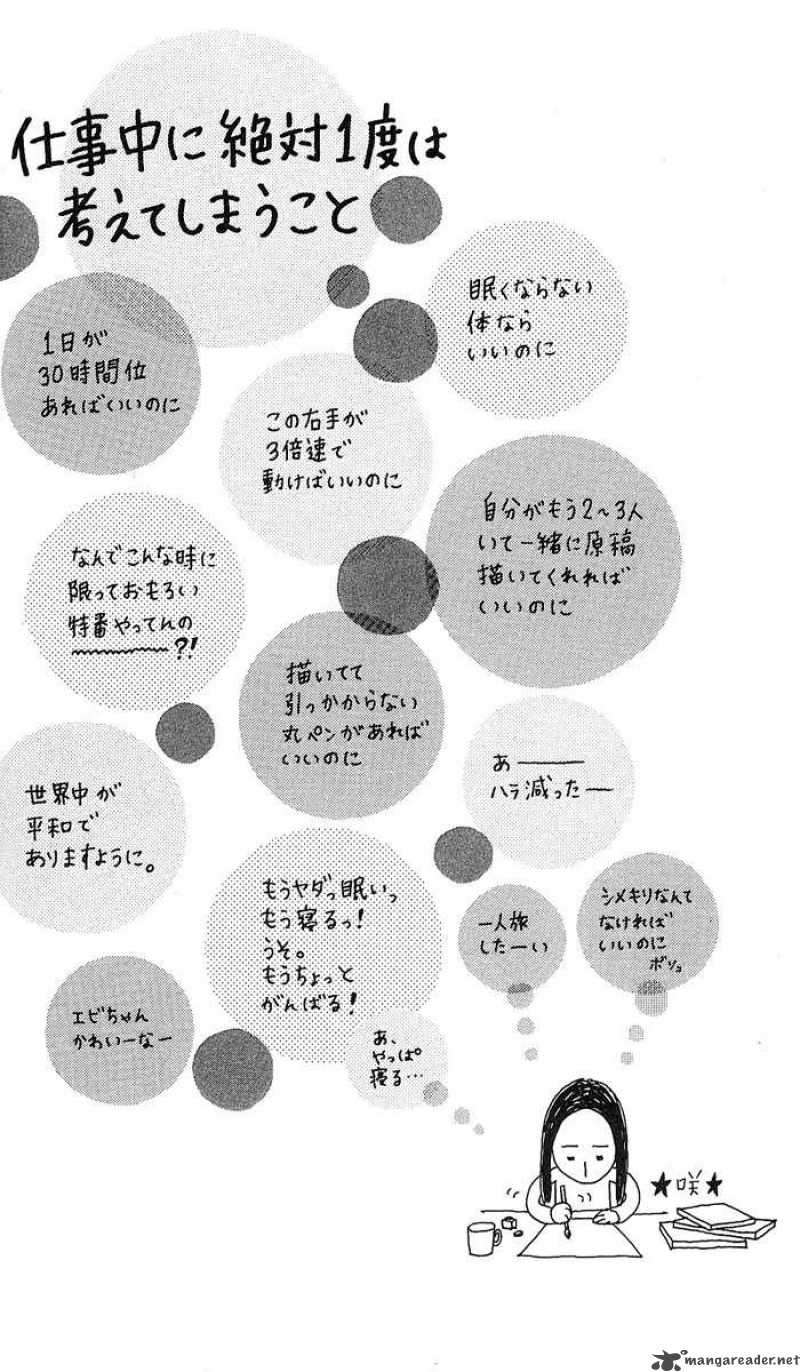 仕事中に絶対1度は
考えてしまうこと
眠くならない
体なら
いいのに
1日が
30時間位
あればいいのに
この右手が
3倍速で
動けばいいのに
自分がもう2〜3人
いて一緒に原稿
描いてくれれば
いいのに
なんでこんな時に
限っておもろい
特番やってんの
?!
描いてて
引っかからない
丸ペンがあれば
いいのに
あー
ハラ減ったー
世界中が
平和で
ありますように。
もうヤダっ眠いっ
もう寝るっ!
うそ。
もうちょっと
がんばる!
一人旅
したーい
シメキリなんて
なければ
いいのに
ボソッ
エビちゃん
かわいーなー
あ、
やっぱ
寝る…
★咲★
mangareader.net